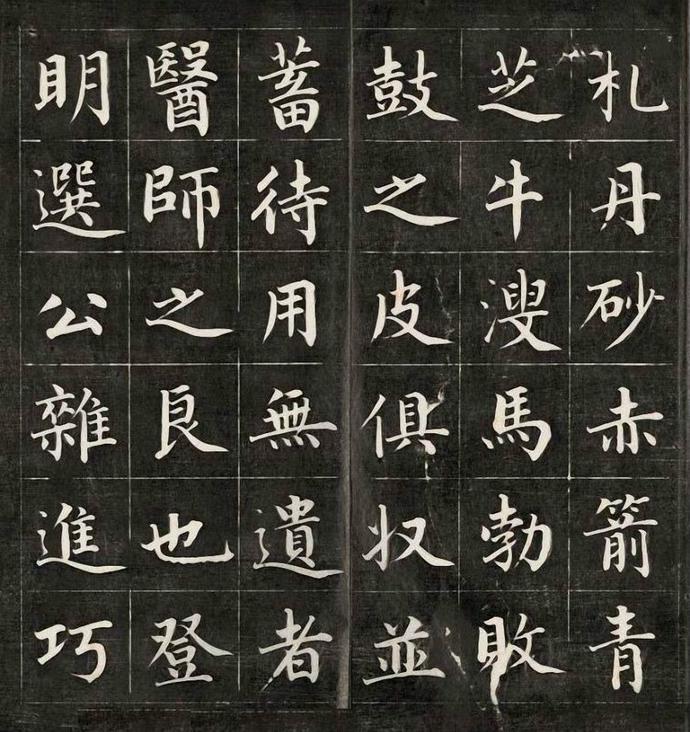 札丹砂赤箭青
芝牛溲馬勃敗
鼓之皮俱収並
蓄待用無遺者
醫師之良也登
明選公雜進巧